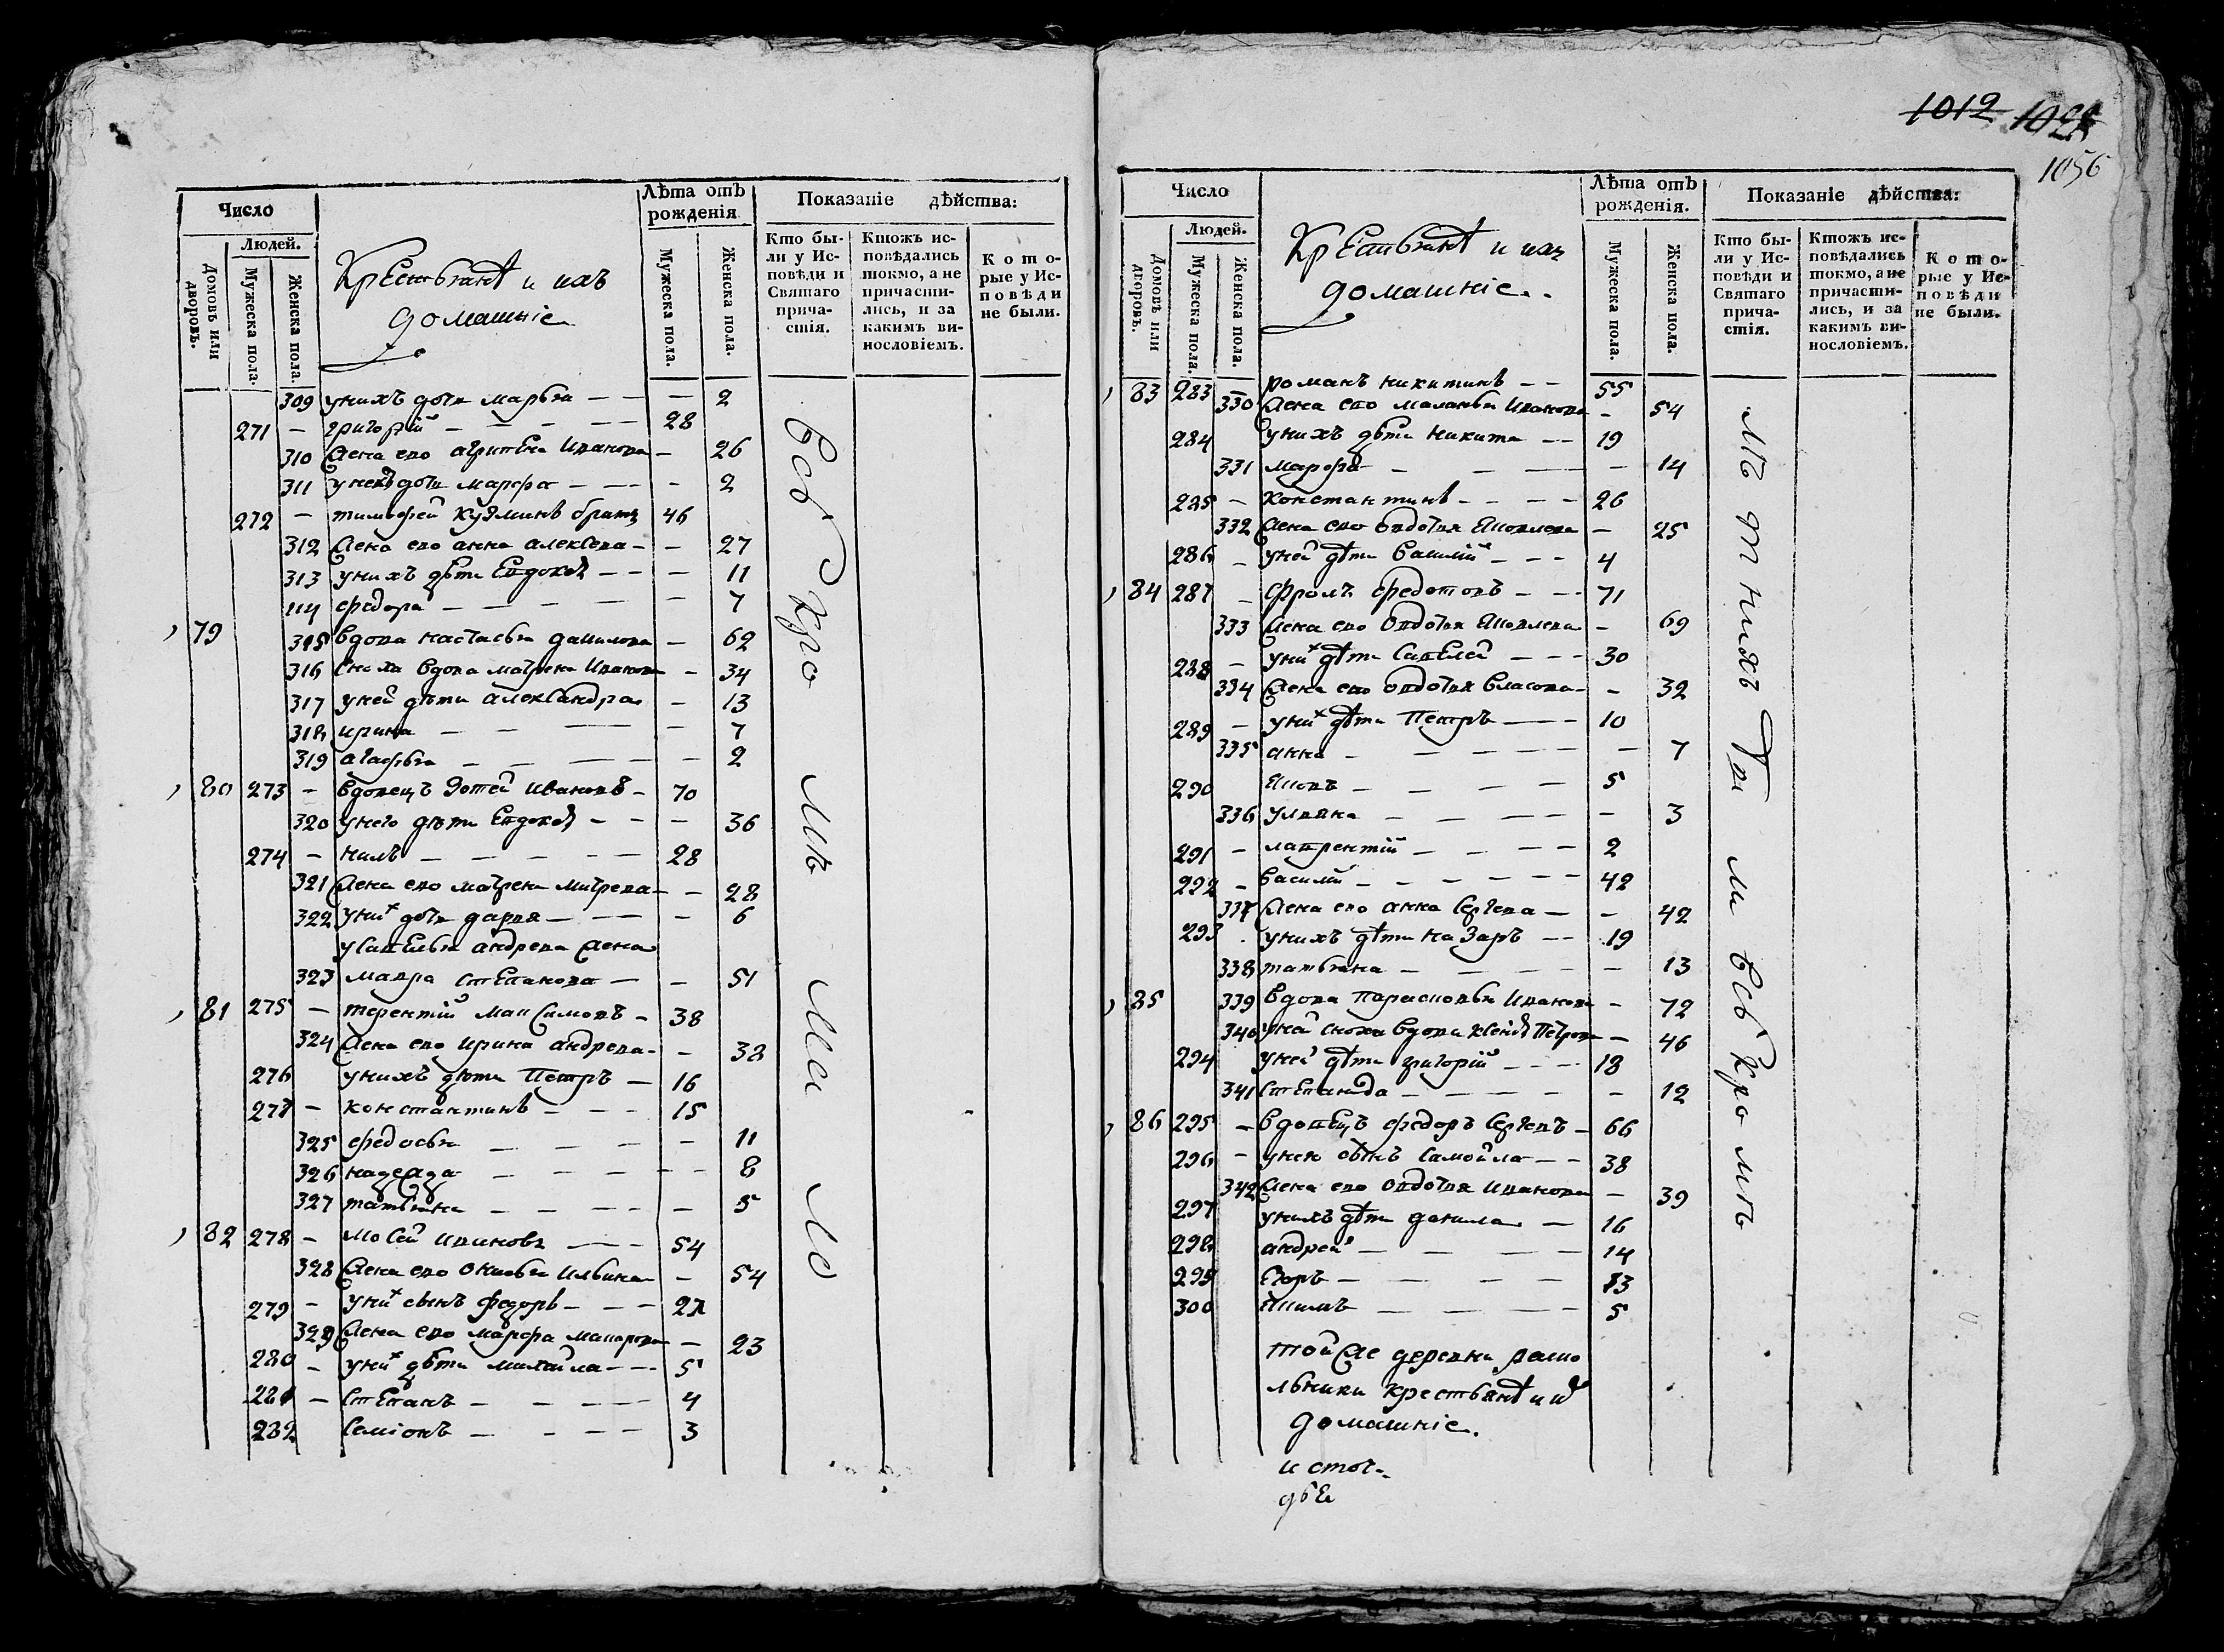 Число
Лѣта отъ рожденія
Показаніе дѣйства:
Домовъ или дворовъ.
Людей.
Мужеска пола.
Женска пола.
Крестьянѣ и ихъ
домашніе
Мужеска пола.
Женска пола.
Кто бы-
ли у Ис-
повѣди и
Святаго
прича-
стія.
Ктожъ ис-
повѣдались
токмо, а не
причасти-
лись, и за
какимъ ви-
нословіемъ.
Кото-
рые у Ис-
повѣди
не были.
309 унихъ дочь марья — — — 2
271 — григорїй — — — — 28
310 жена ево агрипена Иванова — 26
311 унехъ дочь марфа — — — — 2
272 — тимофей кузминъ братъ 46
312 жена ево анна алексева — — 27
313 унихъ дѣти Евдокѣя — — — 11
114 федора — — — — — 7
79 315 вдова настасья данилова — 62
316 сноха вдова матрена Иванова — 34
317 уней дѣти александра — 13
318 ирина — — — — 7
319 агафья — — — — — 2
80 273 — вдовецъ Зотей Ивановъ — 70
320 унего дѣти Евдокѣя — — — 36
274 — нилъ — — — — — 28
321 жена ево матрена митрева — — 28
322 уних дочь дарья — — — — 6
усавелья андрева жена
323 мавра степанова — — 51
81 275 — терентїй максимовъ — 38
324 жена ево ирина андрева — — 38
276 унихъ дѣти Петръ — 16
277 — константинъ — — — 15
325 федосья — — — — — 11
326 надежда — — — — — — 8
327 татьяна — — — — — 5
82 278 — мосей ивановъ — — — 54
328 жена ево 54
279 — уних сынъ федоръ — — —
329 жена ево марфа макарова — 23
280 — уних дѣти михайла — — 5
281 — степанъ — — — — — 4
282 семїонъ — — — — 3
Всѣ Кро мѣ
1012
1056
Число
Лѣта отъ рожденія.
Показаніе дѣйства:
Домовъ или дворовъ.
Людей.
Мужеска пола.
Женска пола.
Крестьянѣ и ихъ
домашніе.
Мужеска пола.
Женска пола.
Кто бы-
ли у Ис-
повѣди и
Святаго
прича-
стія.
Ктожъ ис-
повѣдались
токмо, а не
причасти-
лись, и за
какимъ ви-
нословіемъ.
Кото-
рые у Ис-
повѣди
не были.
83 283 — романъ никитинъ — — 55
330 жена ево маланья Иванова — 54
284 унихъ дѣти никита — — 19
331 марфа — — — — 14
285 — константинъ — — — — 26
332 жена ево овдотья Яковлева — 25
286 — уней дѣти василїй — — — 4
84 287 — фролъ федотовъ — — — 71
333 жена ево овдотья Яковлева — 69
288 — уних дѣти савелей — — — 30
334 жена ево овдотья власова — — 32
289 — уних дѣти Петръ — — — 10
335 анна — — — — — — 7
290 Яковъ — — — — 5
336 ульяна — — — — — 3
291 — лаврентїй — — — — 2
292 — василїй — — — — — 42
337 жена ево анна сергева — — 42
293 унихъ дѣти назаръ — — 19
338 татьяна — — — — — 13
85 339 вдова парасковья Иванова — 72
340 уней сноха вдова Петрова — 46
294 уней дѣти григорїй — — — 18
341 степанида — — — — — 12
86 295 — вдовецъ федоръ сергевъ — 66
296 — унево сынъ самойла — — 38
342 жена ево овдотья иванова — 39
297 унихъ дѣти данила — 16
298 андрей — — — — 14
299 Егоръ — — — — 13
300 Якимъ — — — — 5
той же деревни раско
льники крестьянѣ и ихъ
домашніе.
нихъ Всѣ Кро мѣ